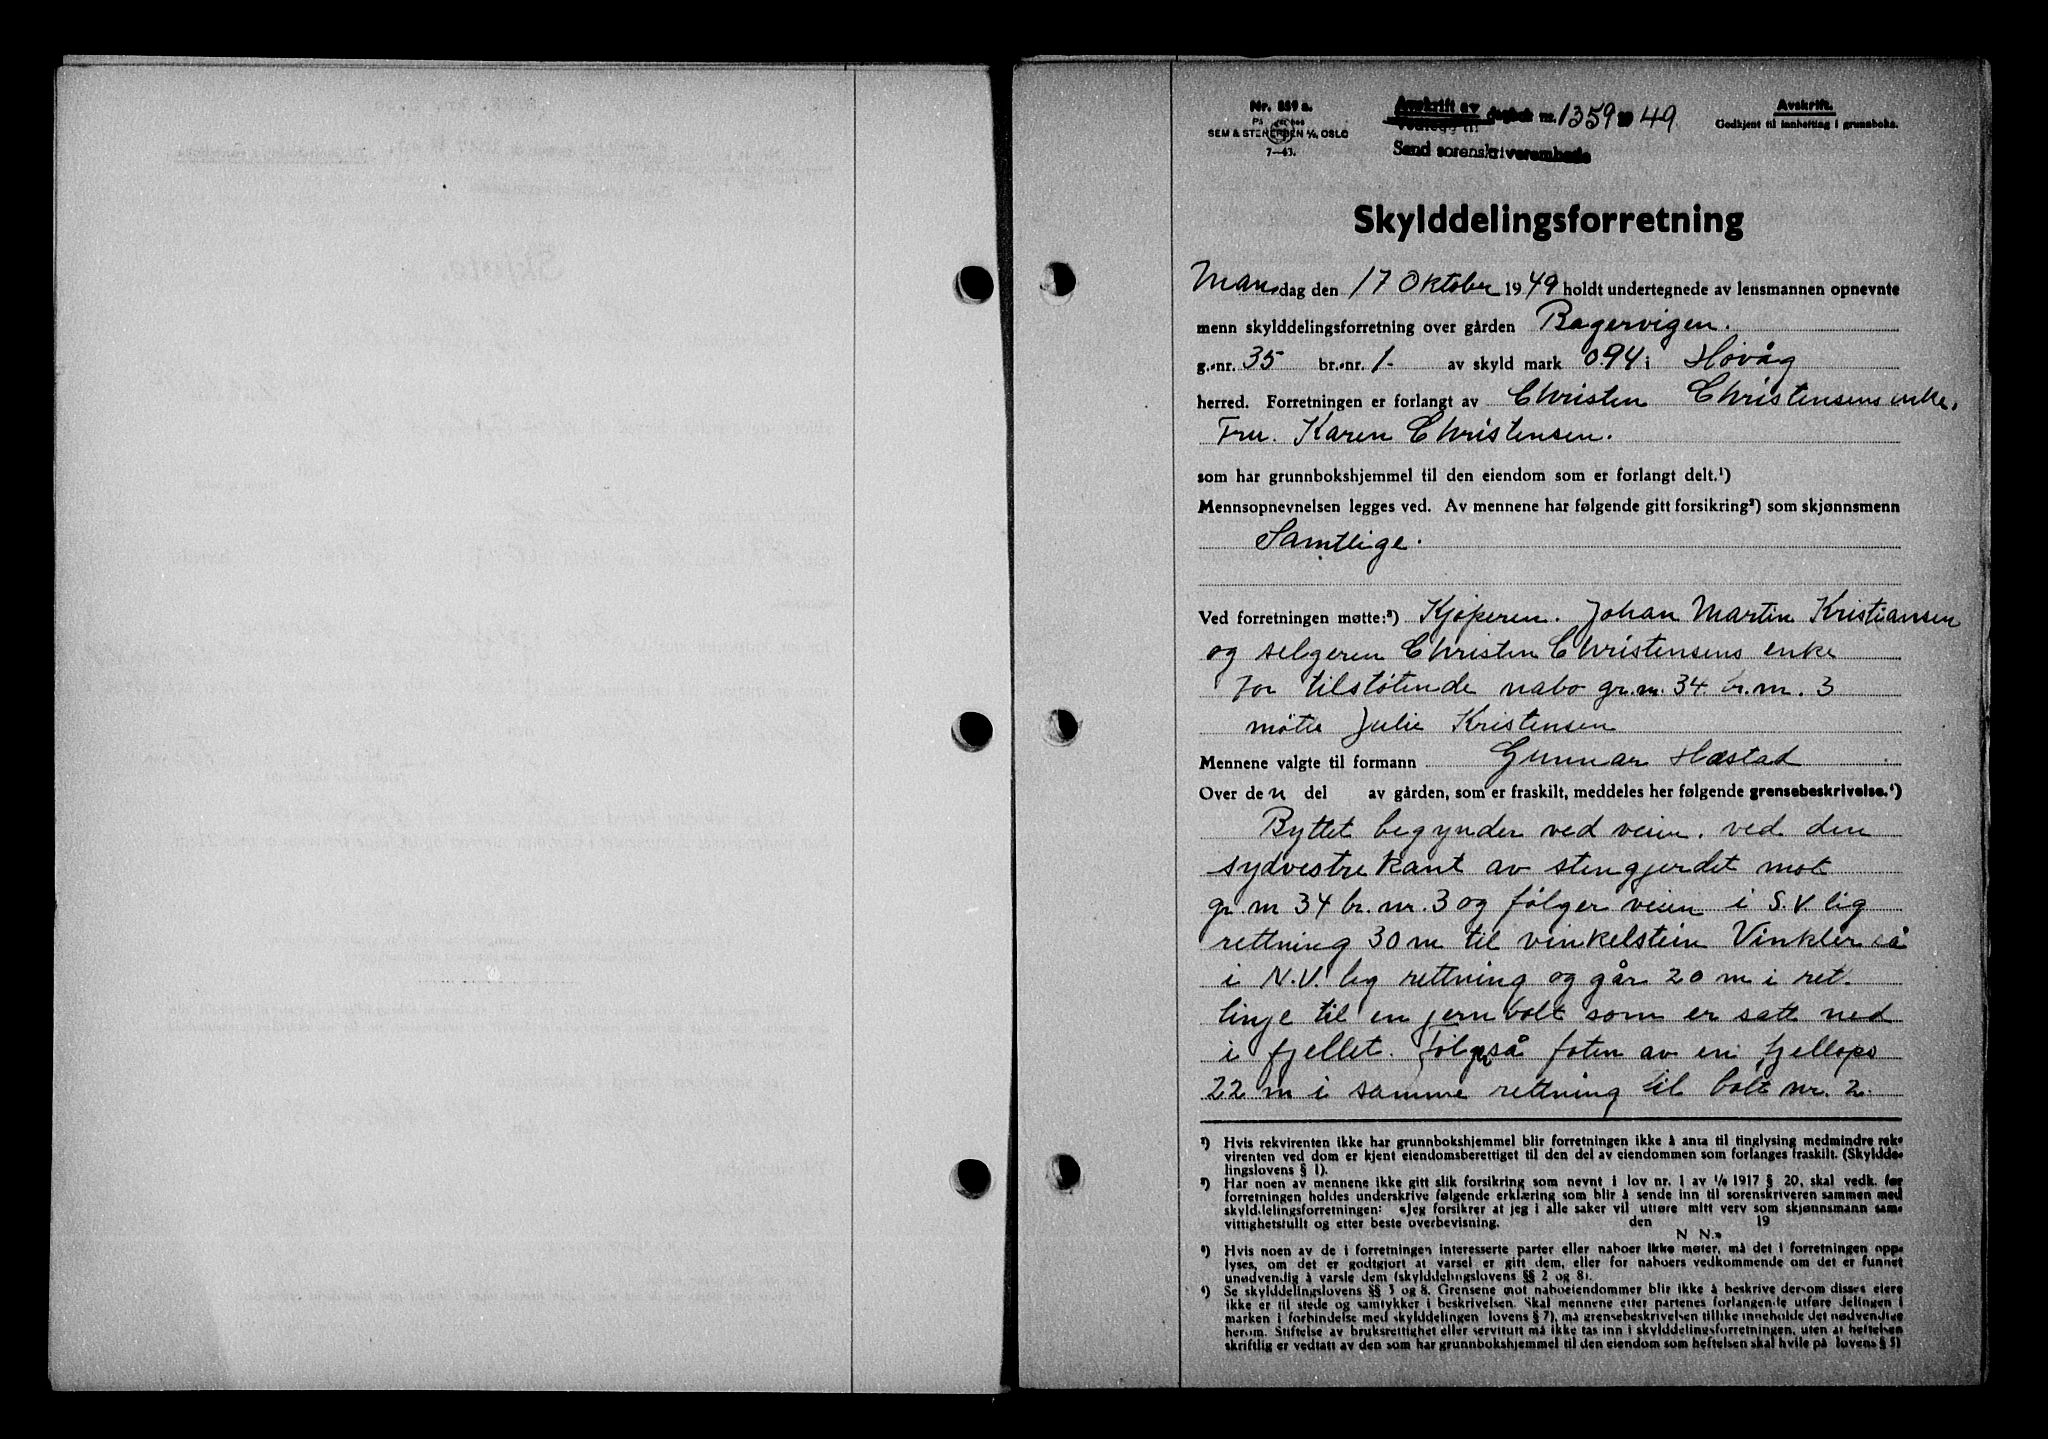 Nr. 859 a.
SEM & STENERSEN A/S, OSLO
7—43.
Avskrift av
Vedlegg til
dagbok nr. 1359 19 49.
Sand sorenskriverembede
Avskrift.
Godkjent til innhefting i grunnboka.
Skylddelingsforretning
Mandag den 17 Oktober 1949 holdt undertegnede av lensmannen opnevnte
menn skylddelingsforretning over gården Bagervigen.
g.-nr. 35 br.-nr. 1- av skyld mark 0.94 i Høvåg
herred. Forretningen er forlangt av Christen Christensens enke,
Fru. Karen Christensen.
som har grunnbokshjemmel til den eiendom som er forlangt delt.¹)
Mennsopnevnelsen legges ved. Av mennene har følgende gitt forsikring²) som skjønnsmenn
Samtlige.
Ved forretningen møtte:³) Kjøperen. Johan Martin Kristiansen
og selgeren Christen Christensens enke
for tilstøtende nabo gr.nr. 34 br.nr. 3
møtte Julie Kristensen
Mennene valgte til formann Gunnar Hæstad
Over den del av gården, som er fraskilt, meddeles her følgende grensebeskrivelse.⁴)
Byttet begynder ved veien. ved den
sydvestre kant av stengjerdet mot
gr.nr 34 br.nr. 3 og følger veien i S.V. lig
rettning 30 m til vinkelstein Vinkler så
i N.V. lig rettning og går 20 m i ret.
linje til en jernbolt som er satt ned
i fjellet. Følger så foten av en fjellops
22 m i samme rettning til bolt nr. 2.
¹) Hvis rekvirenten ikke har grunnbokshjemmel blir forretningen ikke å anta til tinglysing medmindre rek-
virenten ved dom er kjent eiendomsberettiget til den del av eiendommen som forlanges fraskilt. (Skyldde-
lingslovens § 1).
²) Har noen av mennene ikke gitt slik forsikring som nevnt i lov nr. 1 av 1/6 1917 § 20, skal vedk. før
forretningen holdes underskrive følgende erklæring som blir å sende inn til sorenskriveren sammen med
skylddelingsforretningen: «Jeg forsikrer at jeg i alle saker vil utføre mitt verv som skjønnsmann sam-
vittighetsfullt og etter beste overbevisning. den 19
N N.»
³) Hvis noen av de i forretningen interesserte parter eller naboer ikke møter, må det i forretningen opp-
lyses, om det er godtgjort at varsel er gitt dem, eller for naboers vedkommende om det er funnet
unødvendig å varsle dem (skylddelingslovens §§ 2 og 8).
⁴) Se skylddelingslovens §§ 3 og 8. Grensene mot naboeiendommer blir ikke å beskrive dersom disses eiere
ikke er til stede og samtykker i beskrivelsen. Skal mennene etter partenes forlangende utføre delingen i
marken i forbindelse med skylddelingen (lovens § 7), må grensebeskrivelsen tillike inneholde det nødvendige
herom. Stiftelse av bruksrettighet eller servitutt må ikke tas inn i skylddelingsforretningen, uten at heftelsen
skriftlig er vedtatt av den som har grunnbokshjemmel til den eiendom som heftelsen skal hvile på (lovens § 5)